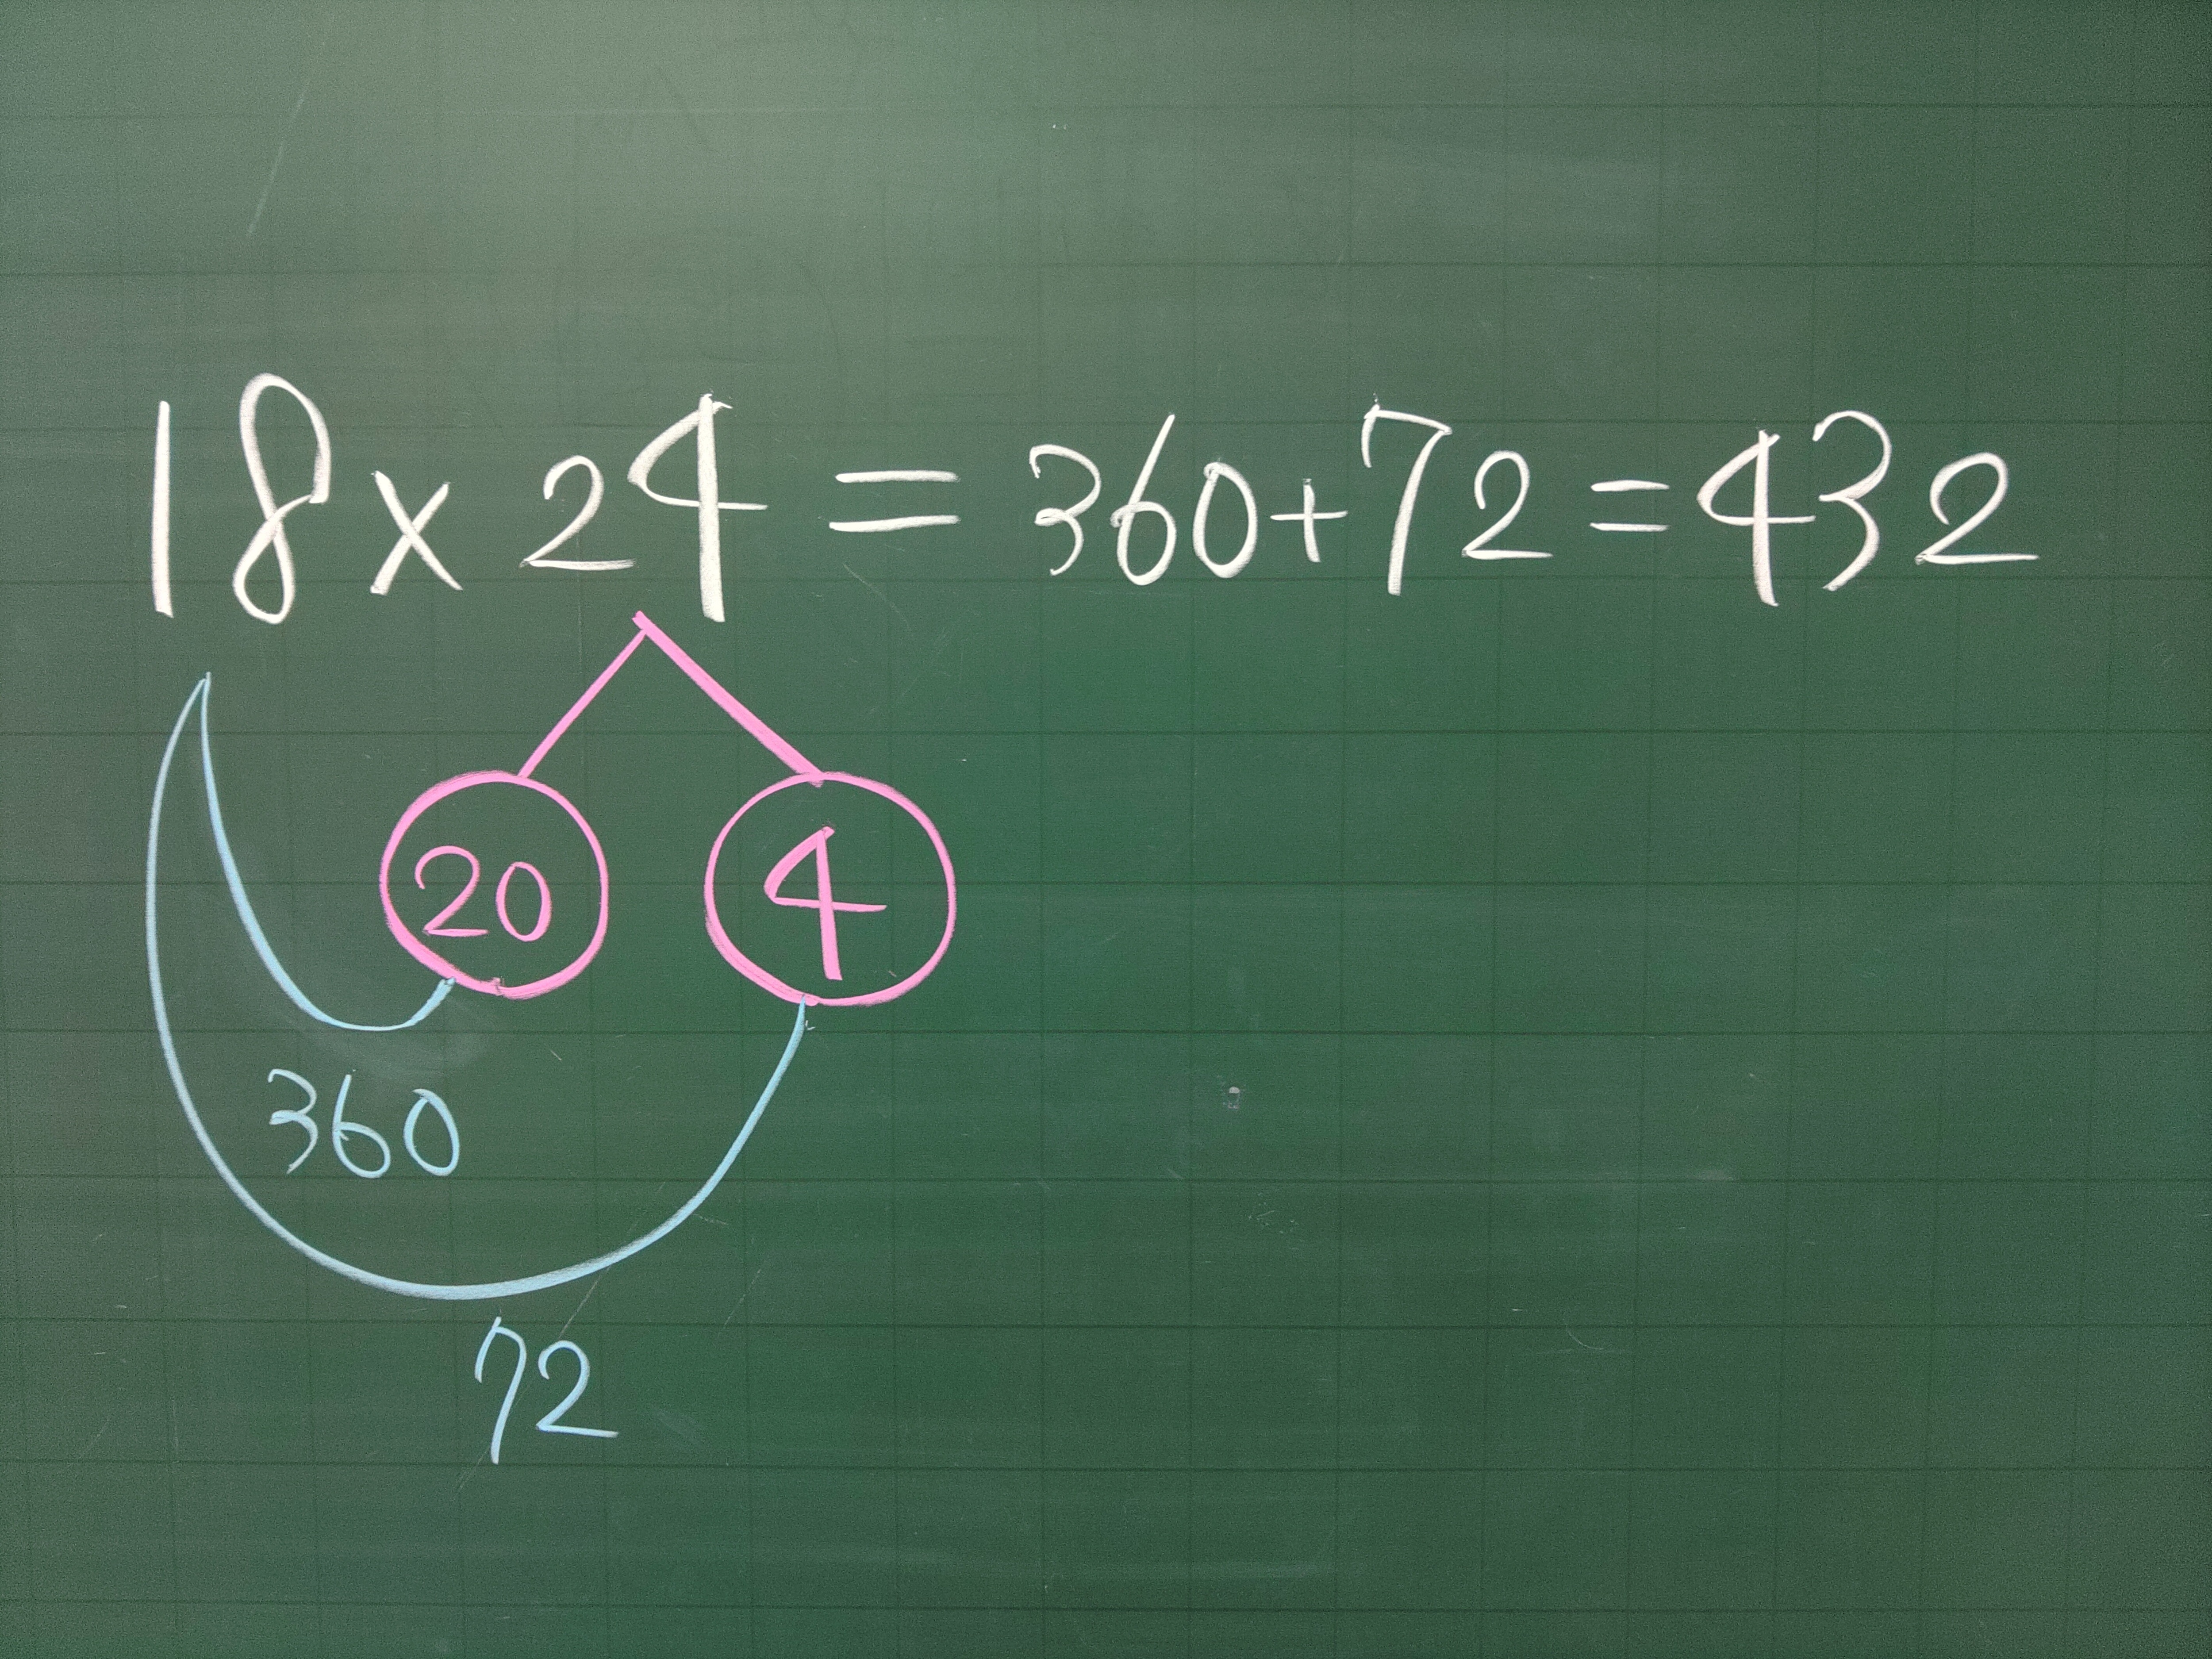 18×24=360+72=432
20 4
360
72